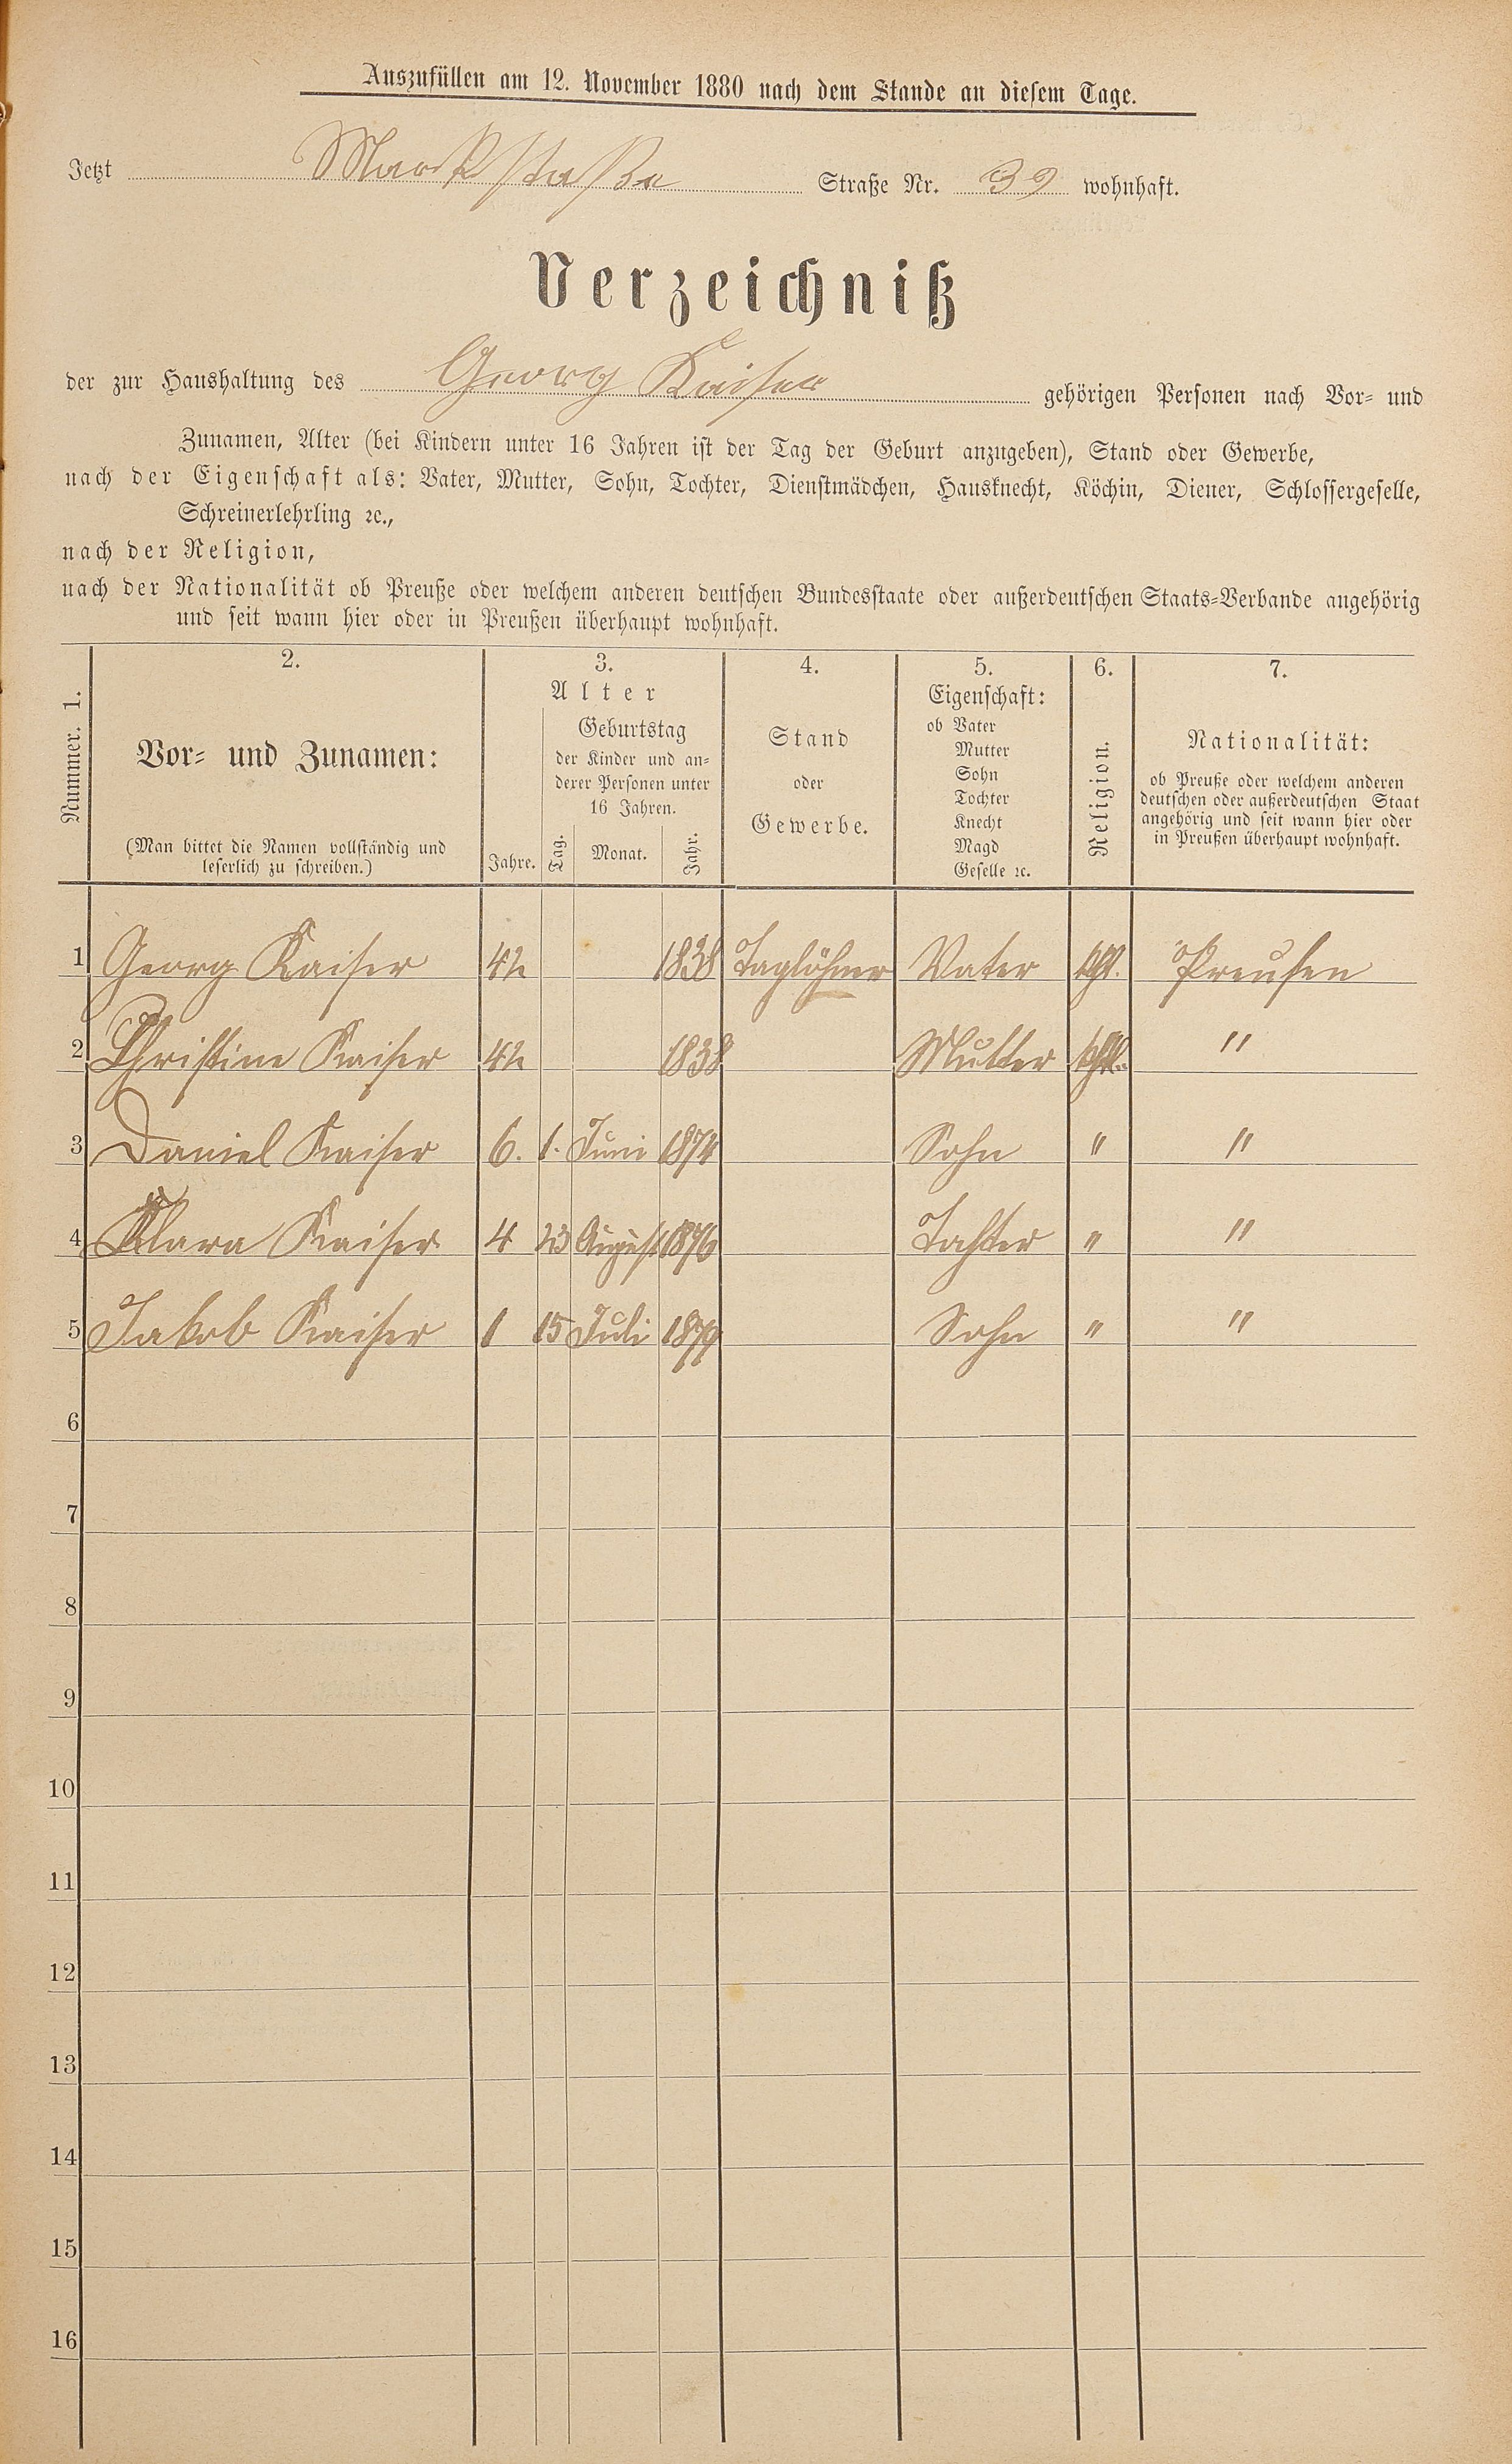 Auszufüllen am 12. November 1880 nach dem Stande an diesem Tage.
Jetzt Markstaße Straße Nr. 39 wohnhaft.
Verzeichniß
der zur Haushaltung des Georg Kaiser gehörigen Personen nach Vor- und
Zunamen, Alter (bei Kindern unter 16 Jahren ist der Tag der Geburt anzugeben), Stand oder Gewerbe,
nach der Eigenschaft als: Vater, Mutter, Sohn, Tochter, Dienstmädchen, Hausknecht, Köchin, Diener, Schlossergeselle,
Schreinerlehrling ꝛc.,
nach der Religion,
nach der Nationalität ob Preuße oder welchem anderen deutschen Bundesstaate oder außerdeutschen Staats-Verbande angehörig
und seit wann hier oder in Preußen überhaupt wohnhaft.
Nummer. 1.
2.
Vor- und Zunamen:
(Man bittet die Namen vollständig und
leserlich zu schreiben.)
3.
Alter
Jahre.
Geburtstag
der Kinder und an-
derer Personen unter
16 Jahren.
Tag. Monat. Jahr.
4.
Stand
oder
Gewerbe.
5.
Eigenschaft:
ob Vater
Mutter
Sohn
Tochter
Knecht
Magd
Geselle ꝛc.
6.
Religion.
7.
Nationalität:
ob Preuße oder welchem anderen
deutschen oder außerdeutschen Staat
angehörig und seit wann hier oder
in Preußen überhaupt wohnhaft.
1 Georg Kaiser 42 1838 Taglöhner Vater Preusen
2 Christine Kaiser 42 1838 Mutter "
3 Daniel Kaiser 6. 1. Juni 1874 Sohn " "
4 Klara Kaiser 4 23 August 1876 Tochter " "
5 Jakob Kaiser 1 15 Juli 1879 Sohn " "
6
7
8
9
10
11
12
13
14
15
16